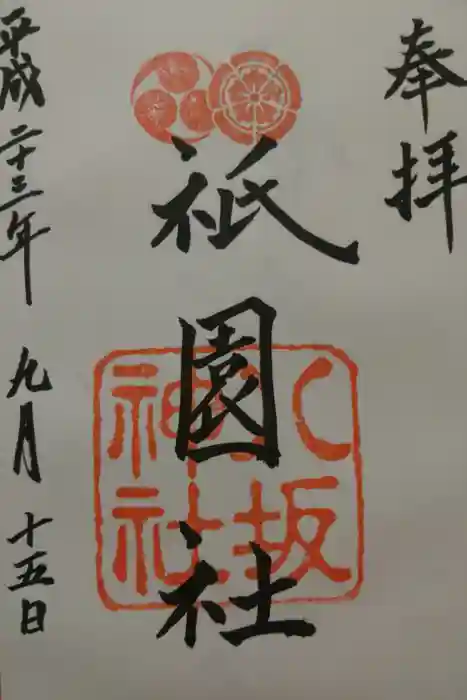 奉拝
祇園社
八坂
神社
平成二十三年九月十五日